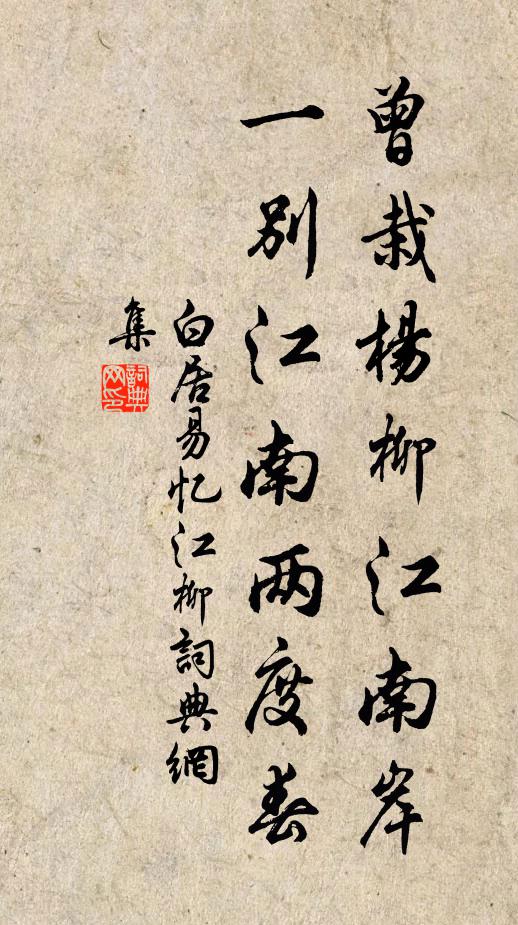 曾栽楊柳江南岸
一别江南两度春
白居易忆江柳詞典網
集
詞典
网印